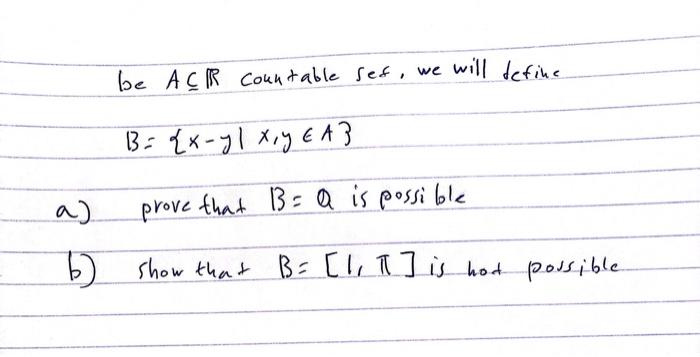 be A ⊆ ℝ countable set, we will define
B = {x-y | x,y ∈ A}
a) prove that B = Q is possible
b) show that B = [1, π] is not possible